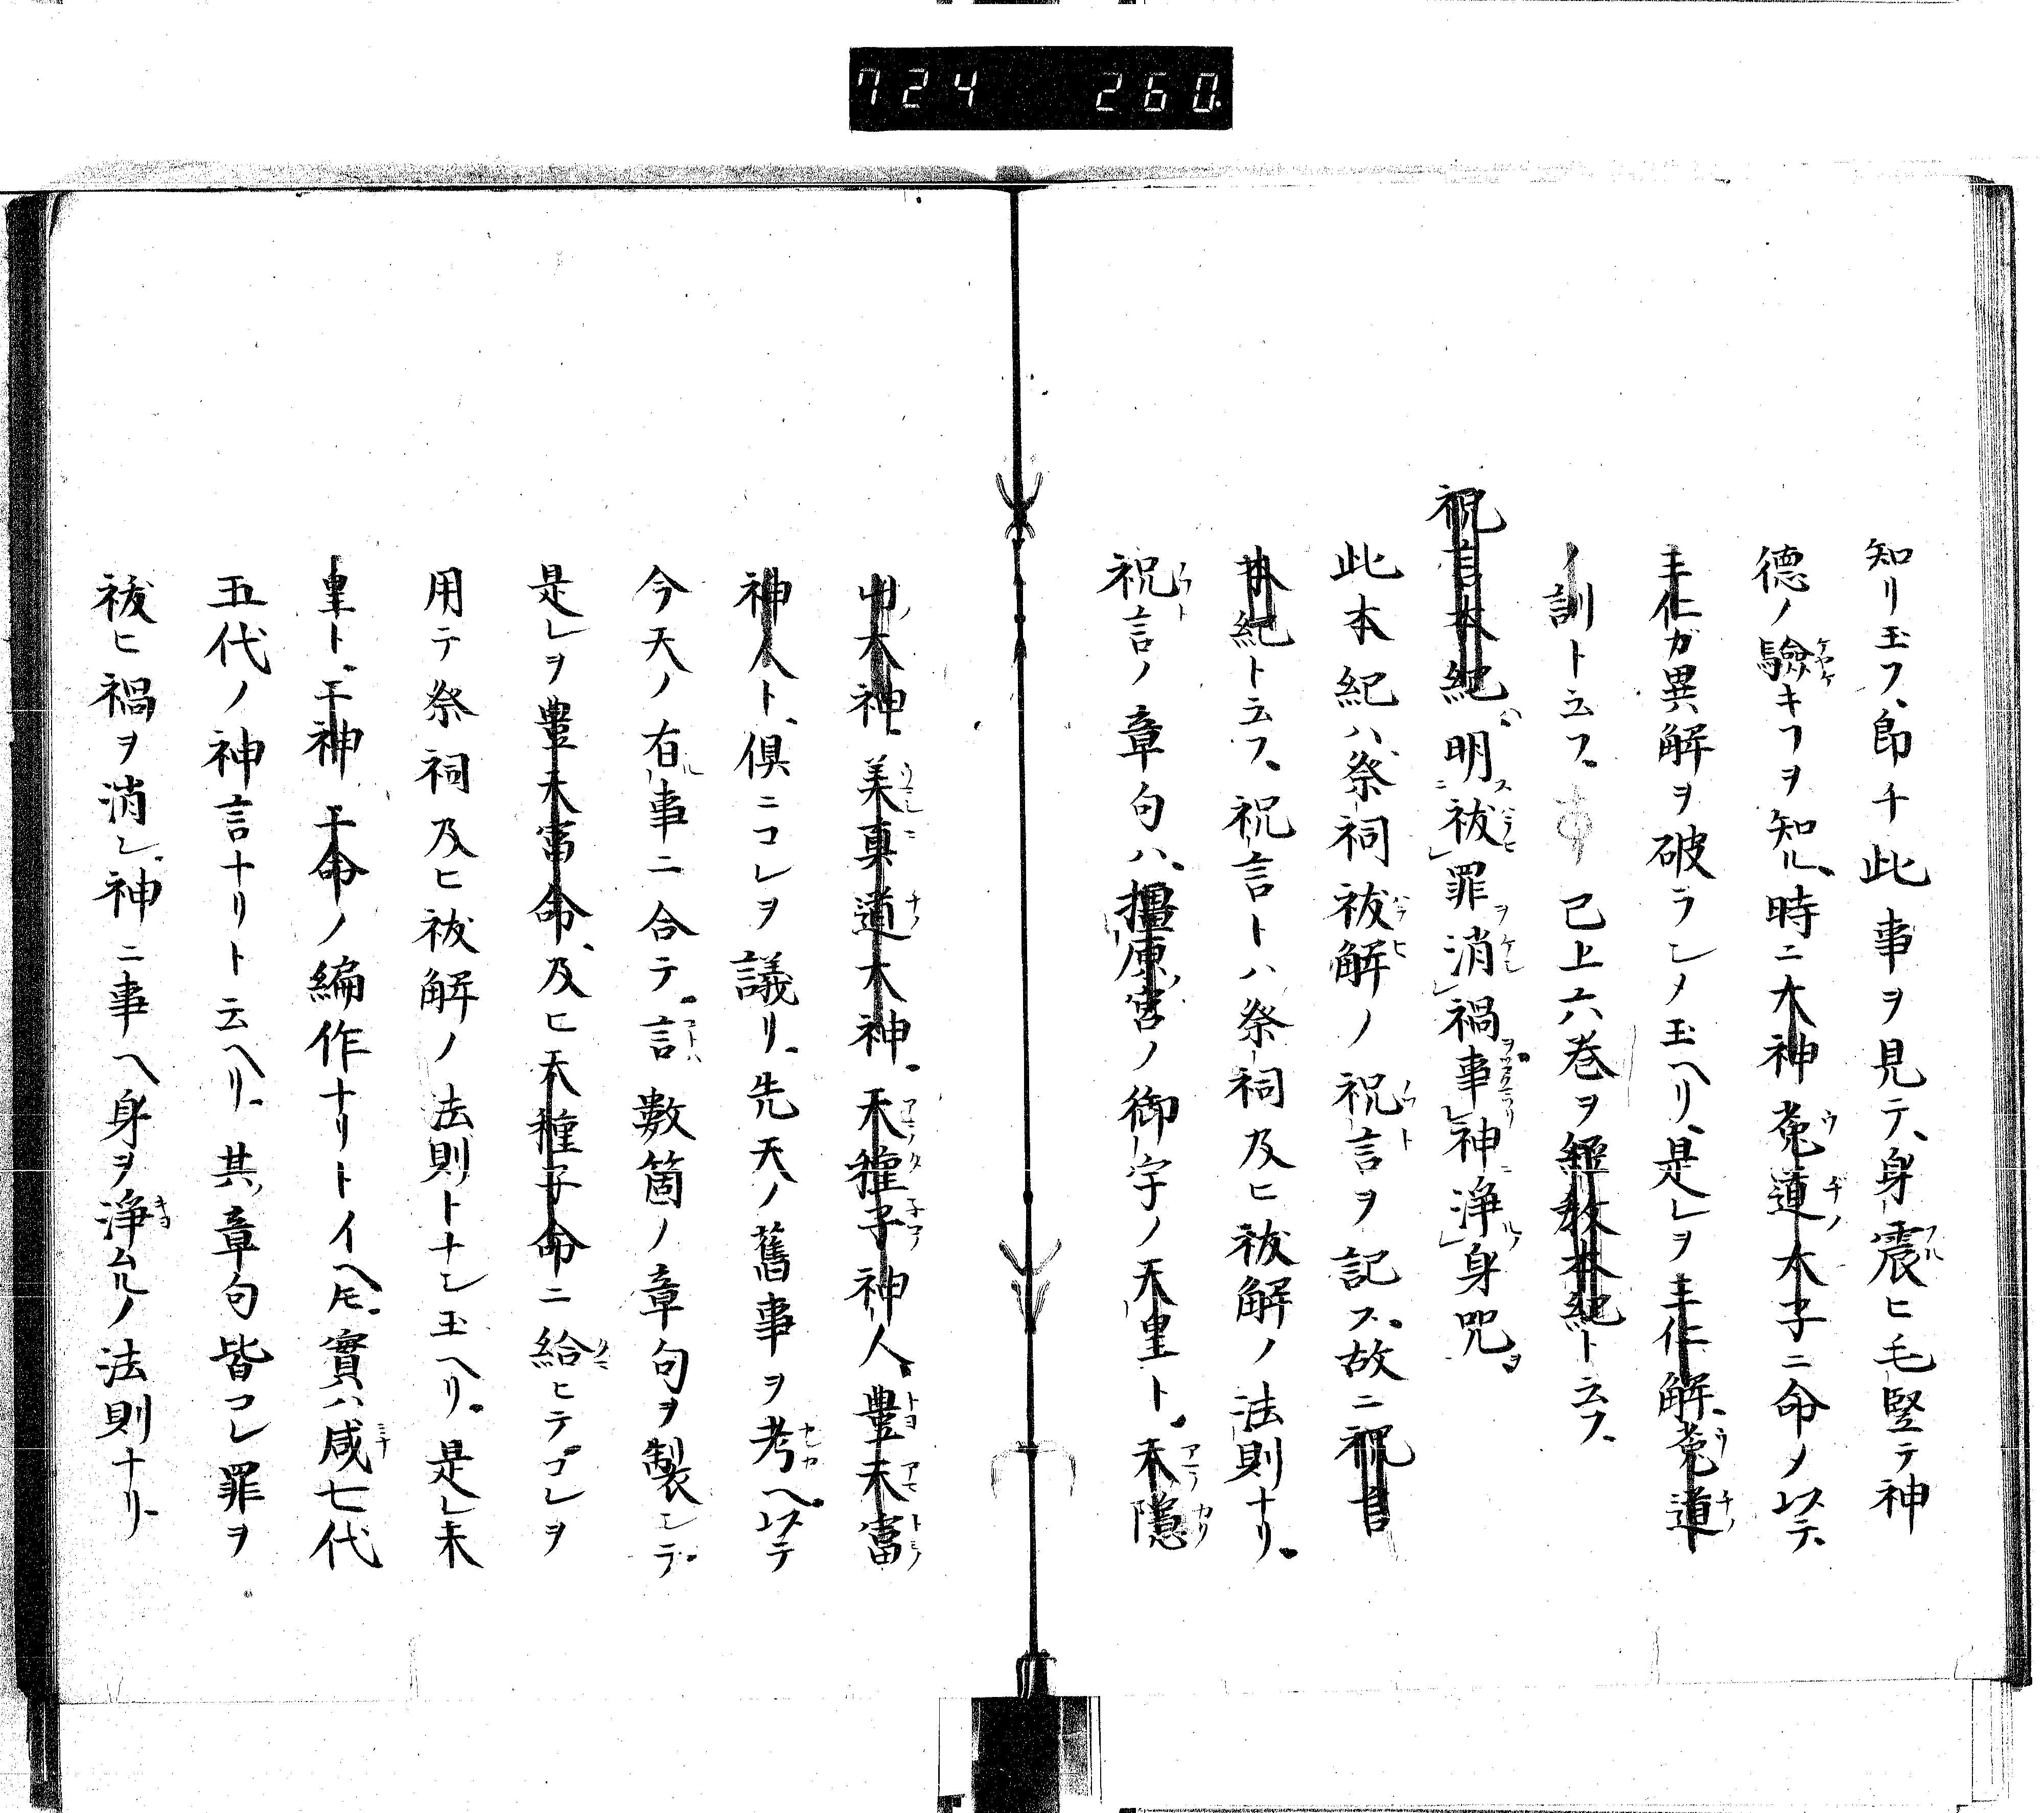 724 260
知リ玉フ、即チ此事ヲ見テ、身震ヒ毛竪テ神
徳ノ驗キフヲ知ル、時ニ大神菟道太子ニ命ノ玉ハステ、
王仁ガ異解ヲ破ラレノ玉ヘリ、是レヲ王仁解、菟道
ノ訓ト云フ、 已上六巻ヲ經教本紀ト云フ、
祝言本紀ハ明祓罪消禍事神浄身咒ヲ
此本紀ハ祭祠祓解ノ祝言ヲ記ス、故ニ祝言
本紀ト云フ、祝言トハ祭祠及ヒ祓解ノ法則ナリ。
祝言ノ章句ハ、橿原宮ノ御宇ノ天皇ト。天隠
山大神、美真道大神。天種子神人、豊天富
神人ト、倶ニコレヲ議リ。先天ノ舊事ヲ考ヘ。以テ
今天ノ有事ニ合テ。言數箇ノ章句ヲ製シテ。
是レヲ豊天富命、及ヒ天種子命ニ給ヒテ。コレヲ
用テ祭祠及ヒ祓解ノ法則トナシ玉ヘリ。是レ天
皇ト、二神二命ノ編作ナリトイヘ𪜈。實ハ咸七代
五代ノ神言ナリト云ヘリ。其章句皆コレ罪ヲ
祓ヒ禍ヲ消シ、神ニ事ヘ身ヲ浄ムルノ法則ナリ、